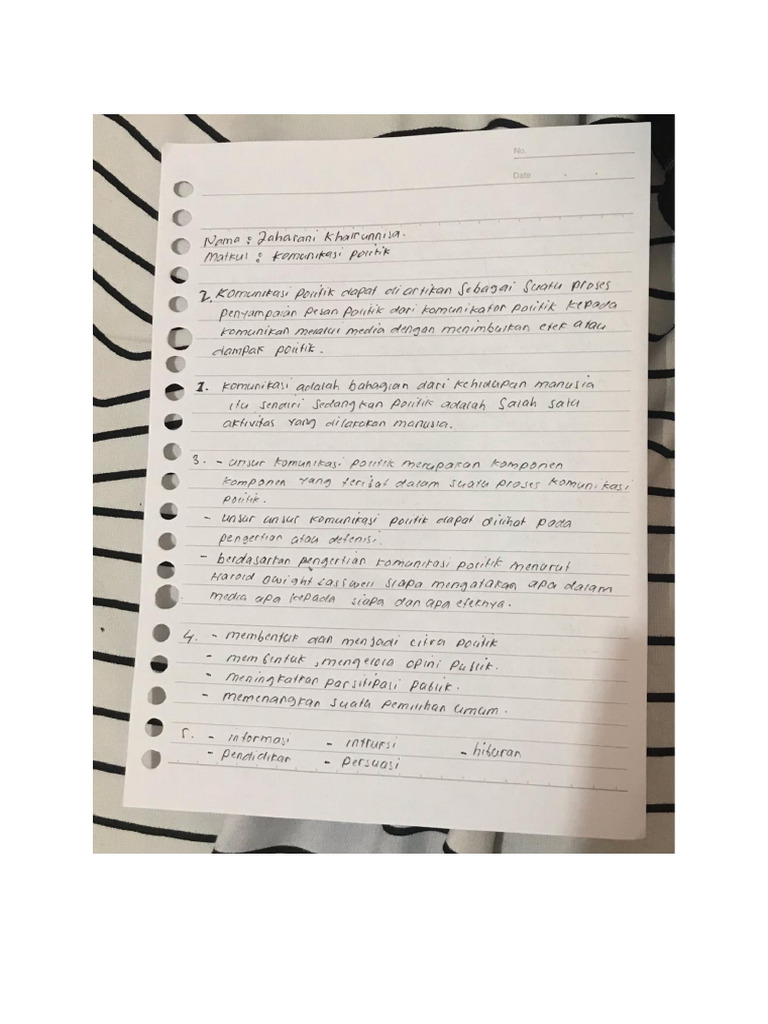 No.
Date
Nama : Zaharani Khairunnisa.
Matkul : Komunikasi politik
2. Komunikasi politik dapat diartikan sebagai suatu proses
penyampaian pesan politik dari komunikator politik kepada
komunikan melalui media dengan menimbulkan efek atau
dampak politik.
1. komunikasi adalah bahagian dari kehidupan manusia
itu sendiri sedangkan politik adalah salah satu
aktivitas yang dilakukan manusia.
3. - unsur komunikasi politik merupakan komponen
komponen yang terlibat dalam suatu proses komunikasi
politik.
- unsur unsur komunikasi politik dapat dilihat pada
pengertian atau defenisi.
- berdasarkan pengertian komunikasi politik menurut
Harold Dwight Lasswell siapa mengatakan apa dalam
media apa kepada siapa dan apa efeknya.
4. - membentuk dan menjadi citra politik
- membentuk, mengelola opini publik.
- meningkatkan parsitipasi publik.
- memenangkan suatu pemilihan umum.
5. - informasi - intruksi - hiburan
- pendidikan - persuasi